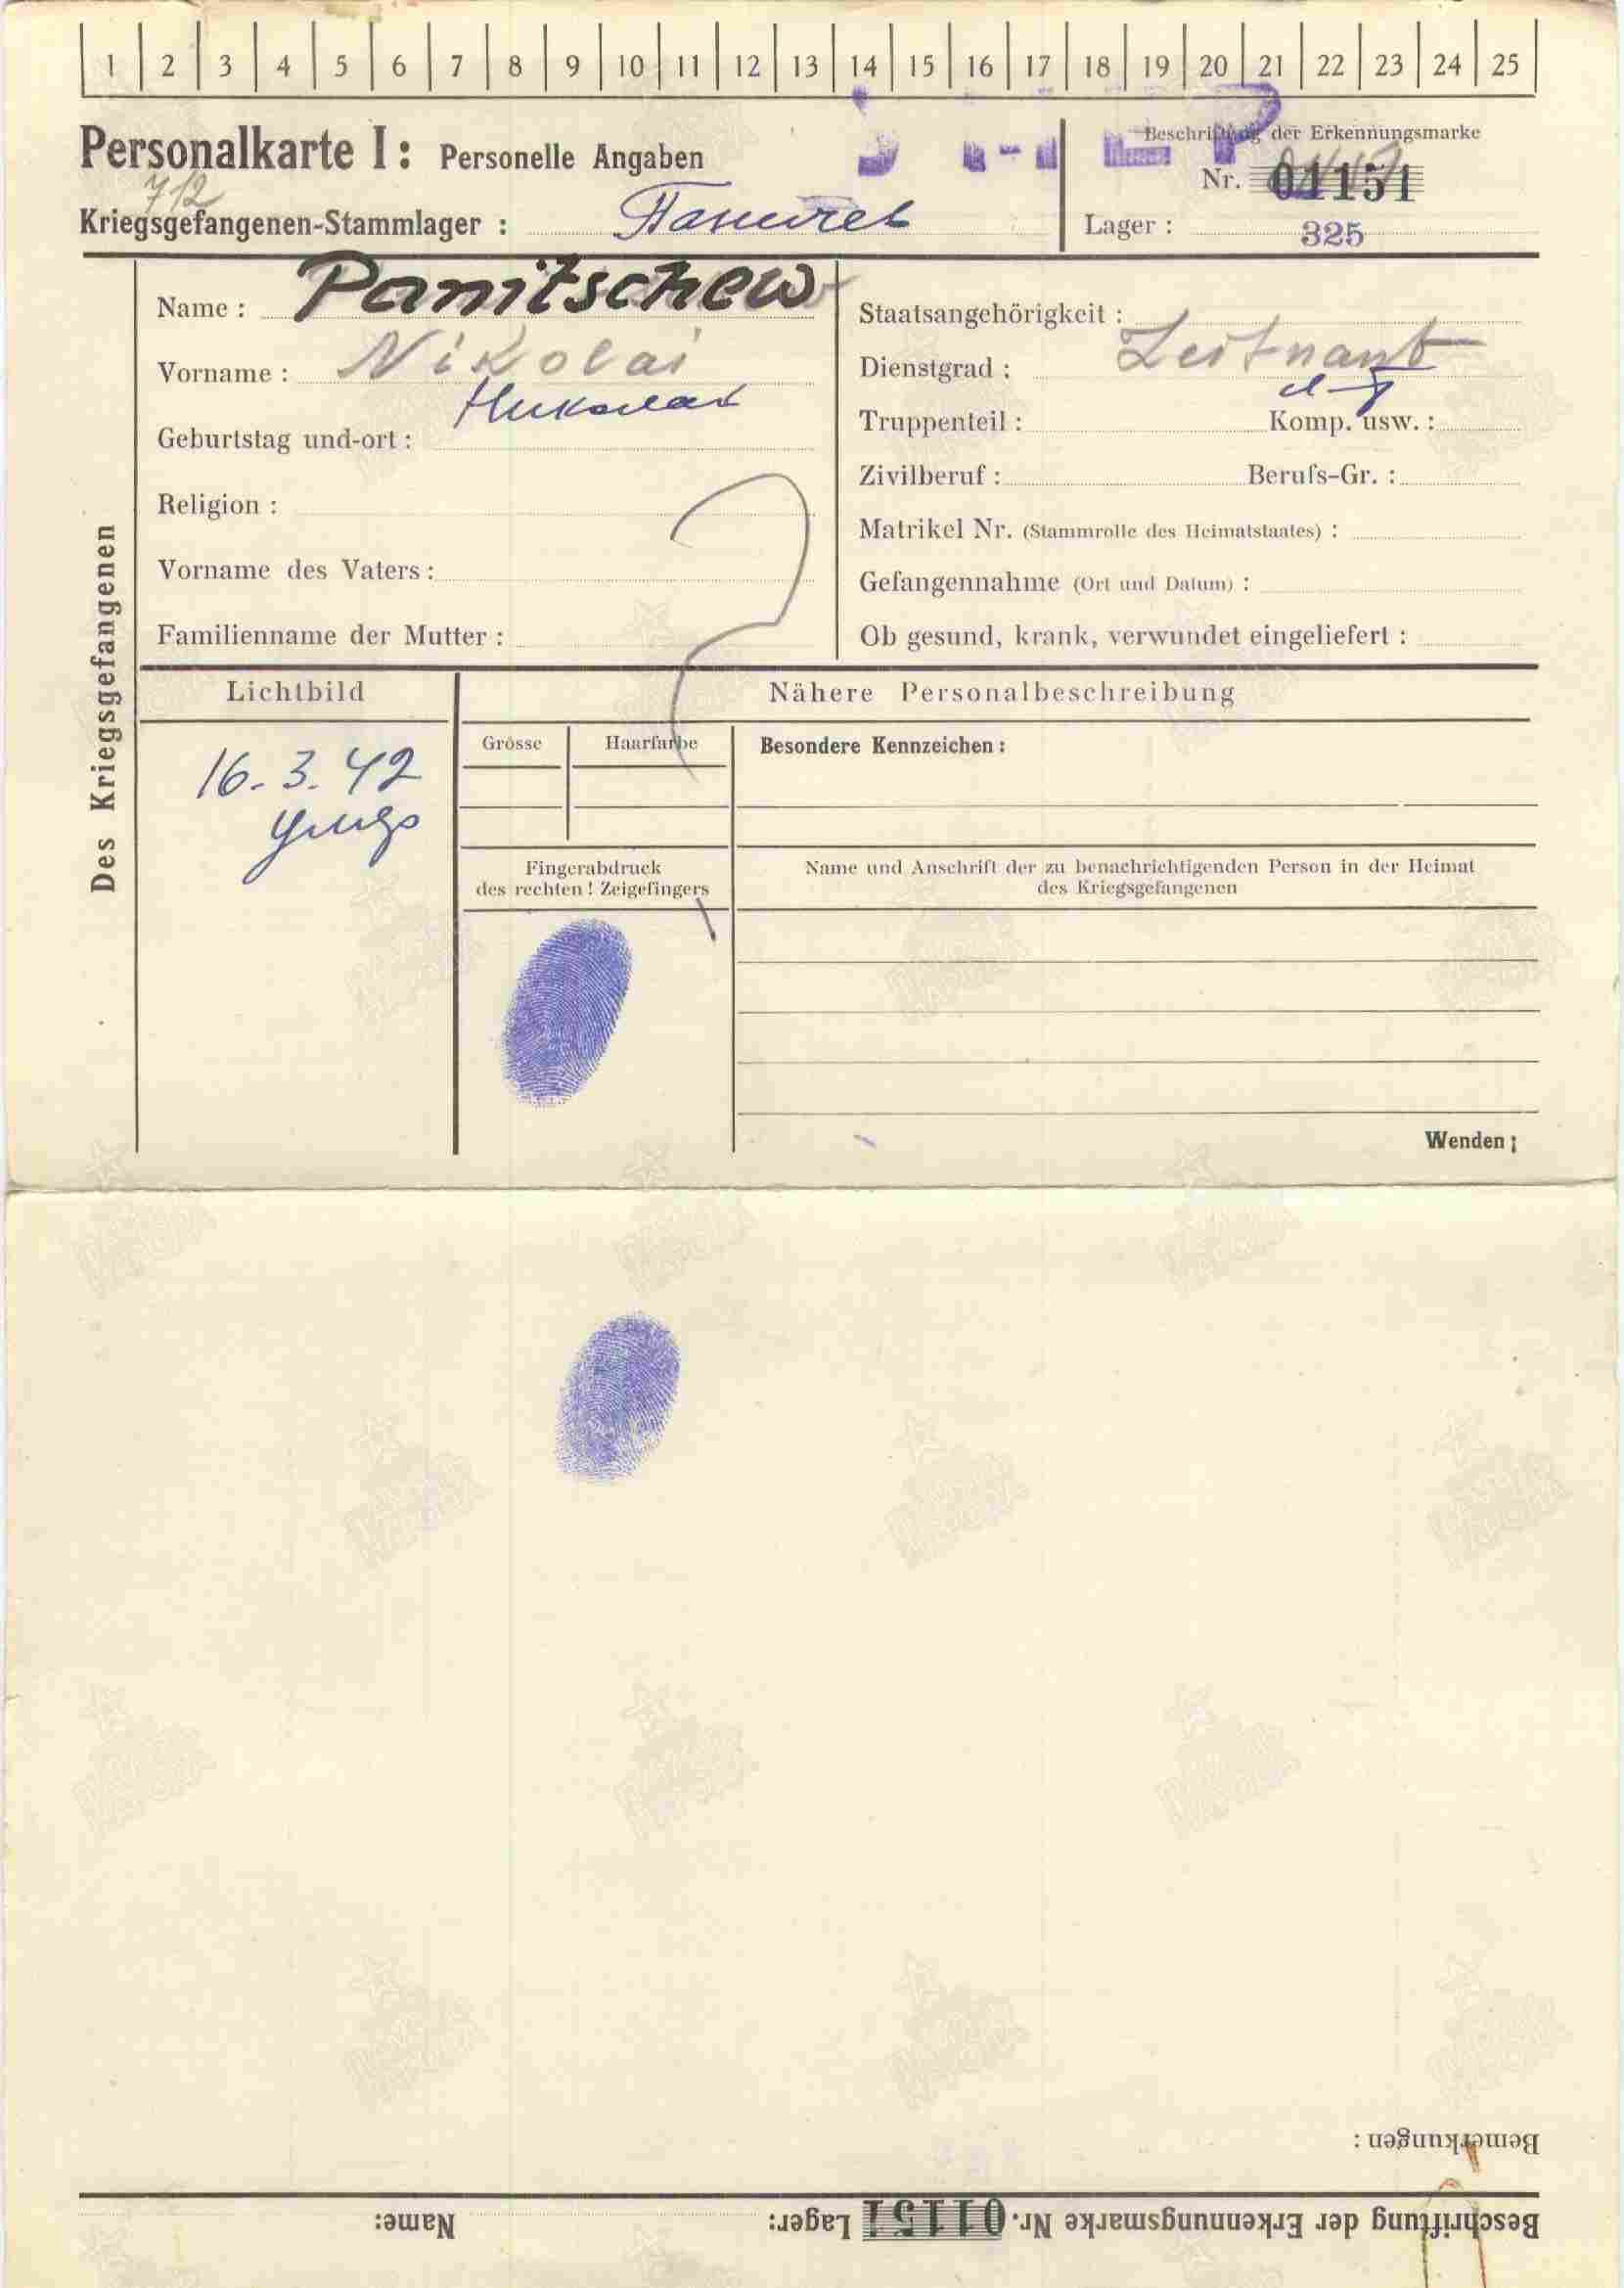 1 2 3 4 5 6 7 8 9 10 11 12 13 14 15 16 17 18 19 20 21 22 23 24 25
Personalkarte I: Personelle Angaben
Beschriftung der Erkennungsmarke
712
Nr. 01151
Kriegsgefangenen-Stammlager : Паничев
Lager : 325
Des Kriegsgefangenen
Name : Panitschew
Vorname : Nikolai
Николай
Geburtstag und-ort :
Religion :
Vorname des Vaters :
Familienname der Mutter :
Staatsangehörigkeit :
Dienstgrad : Leitnant
Truppenteil : Komp. usw. :
Zivilberuf : Berufs-Gr. :
Matrikel Nr. (Stammrolle des Heimatstaates) :
Gefangennahme (Ort und Datum) :
Ob gesund, krank, verwundet eingeliefert :
Lichtbild
16. 3. 42
умер
Nähere Personalbeschreibung
Grösse Haarfarbe Besondere Kennzeichen :
Fingerabdruck
des rechten ! Zeigefingers
Name und Anschrift der zu benachrichtigenden Person in der Heimat
des Kriegsgefangenen
Wenden ;
Bemerkungen :
Beschriftung der Erkennungsmarke Nr. 01151 Lager: Name: